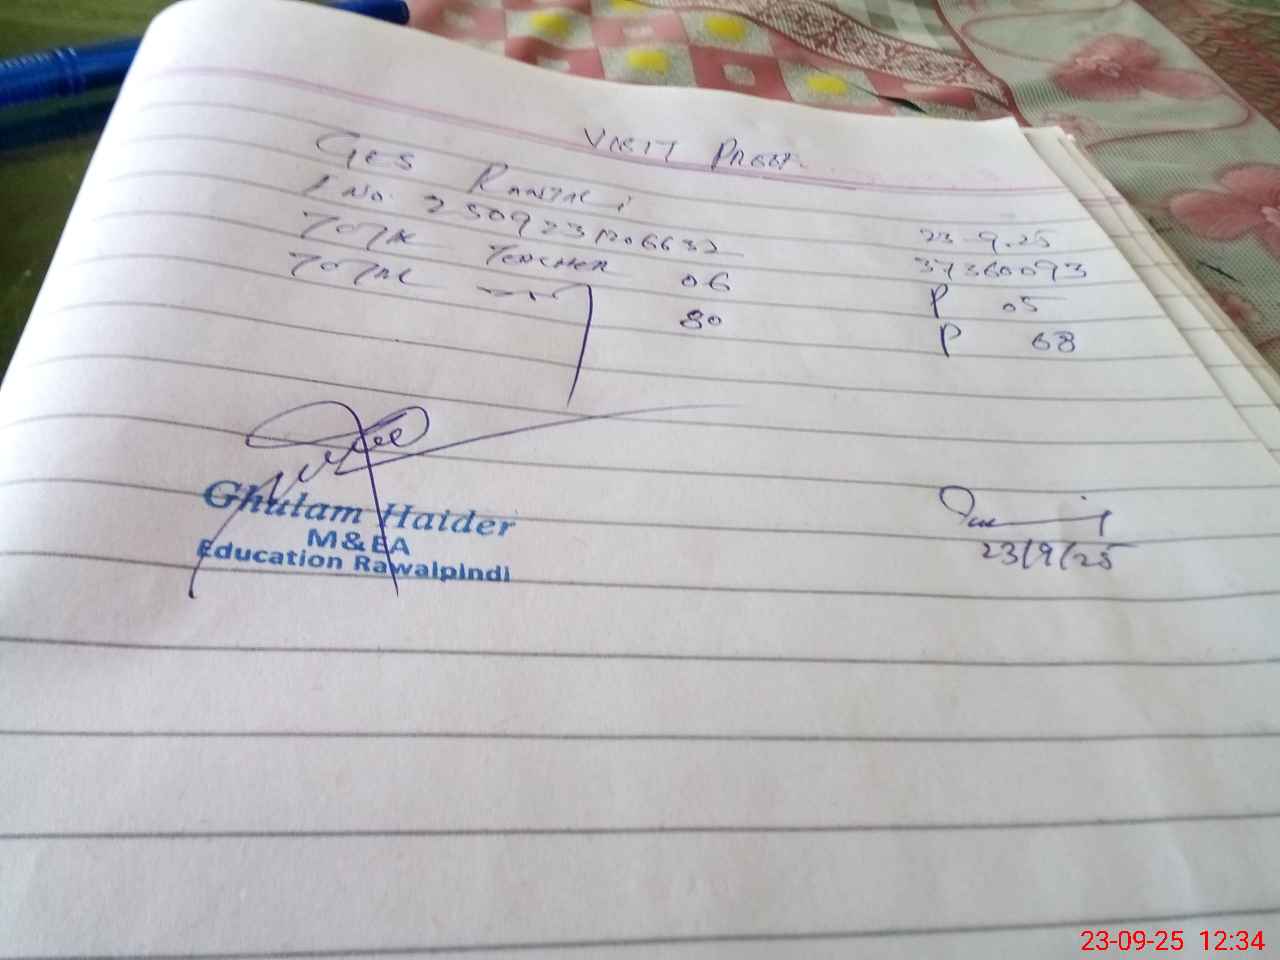 VISIT PROOF
GES
23-9-25
No. 2509231206632 37360093
TOTAL TEACHER 06 P 05
TOTAL 80 P 68
Ghulam Haider
M&EA
Education Rawalpindi
23/9/25
23-09-25 12:34